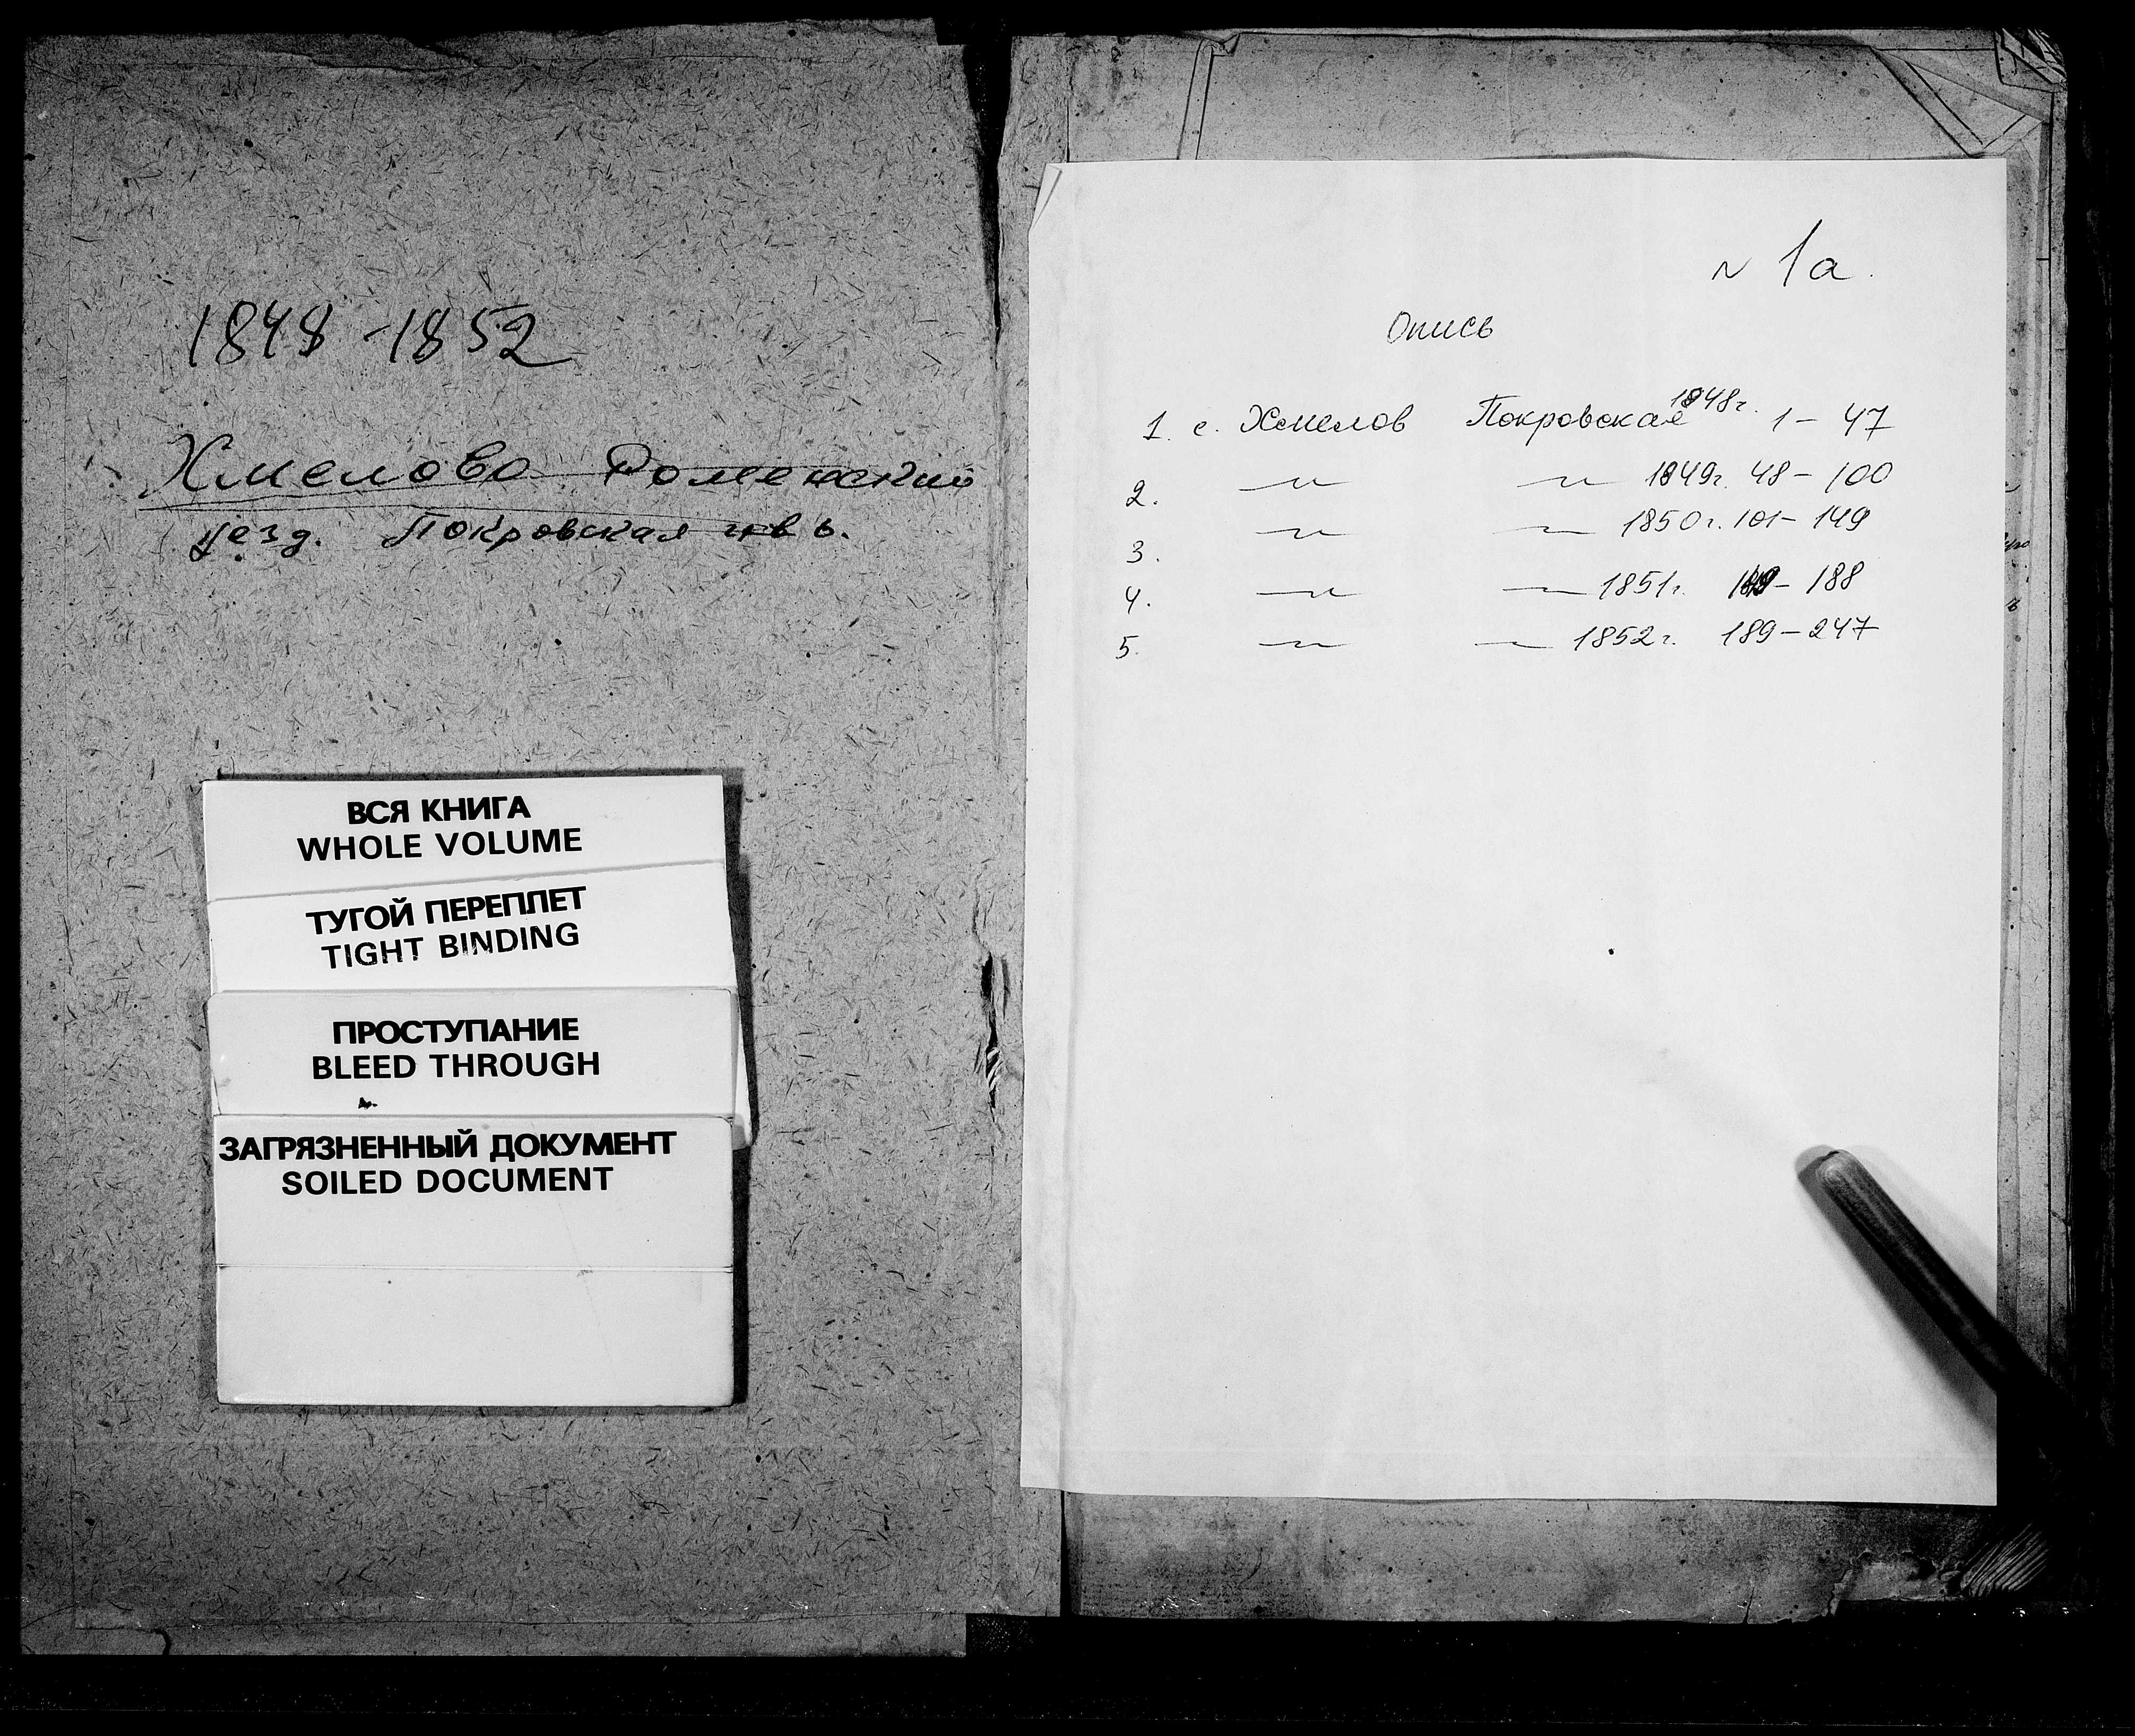 1848 - 1852
Хмелово Роменский
уезд. Покровская
ВСЯ КНИГА
WHOLE VOLUME
ТУГОЙ ПЕРЕПЛЕТ
TIGHT BINDING
ПРОСТУПАНИЕ
BLEED THROUGH
ЗАГРЯЗНЕННЫЙ ДОКУМЕНТ
SOILED DOCUMENT
N 1а.
Опись
1. с. Хмелов Покровская 1848г. 1 - 47
2. —"— —"— 1849г. 48 - 100
3. —"— —"— 1850г. 101 - 149
4. —"— —"— 1851г. - 188
5. —"— —"— 1852г. 189 - 247